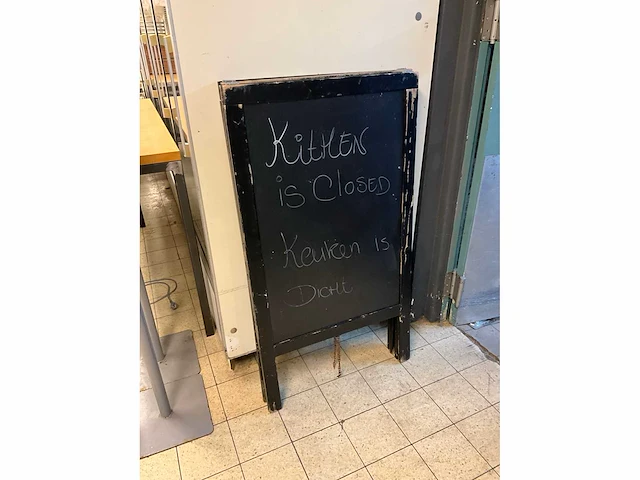 Kitchen
is Closed
Keuken is
Dicht